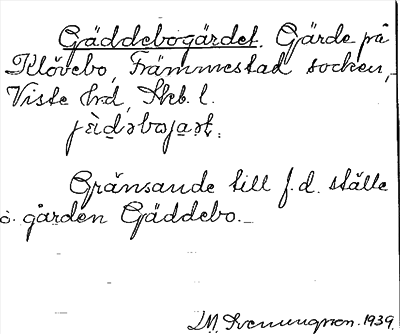 Gäddebogärdet. Gärde på
Klövebo, Främmestad socken,
Viste hrd, Skb. l.
jèd̯əbojaət.
Gränsande till f.d. ställe
o. gården Gäddebo.
J.M. Svenungsson. 1939.